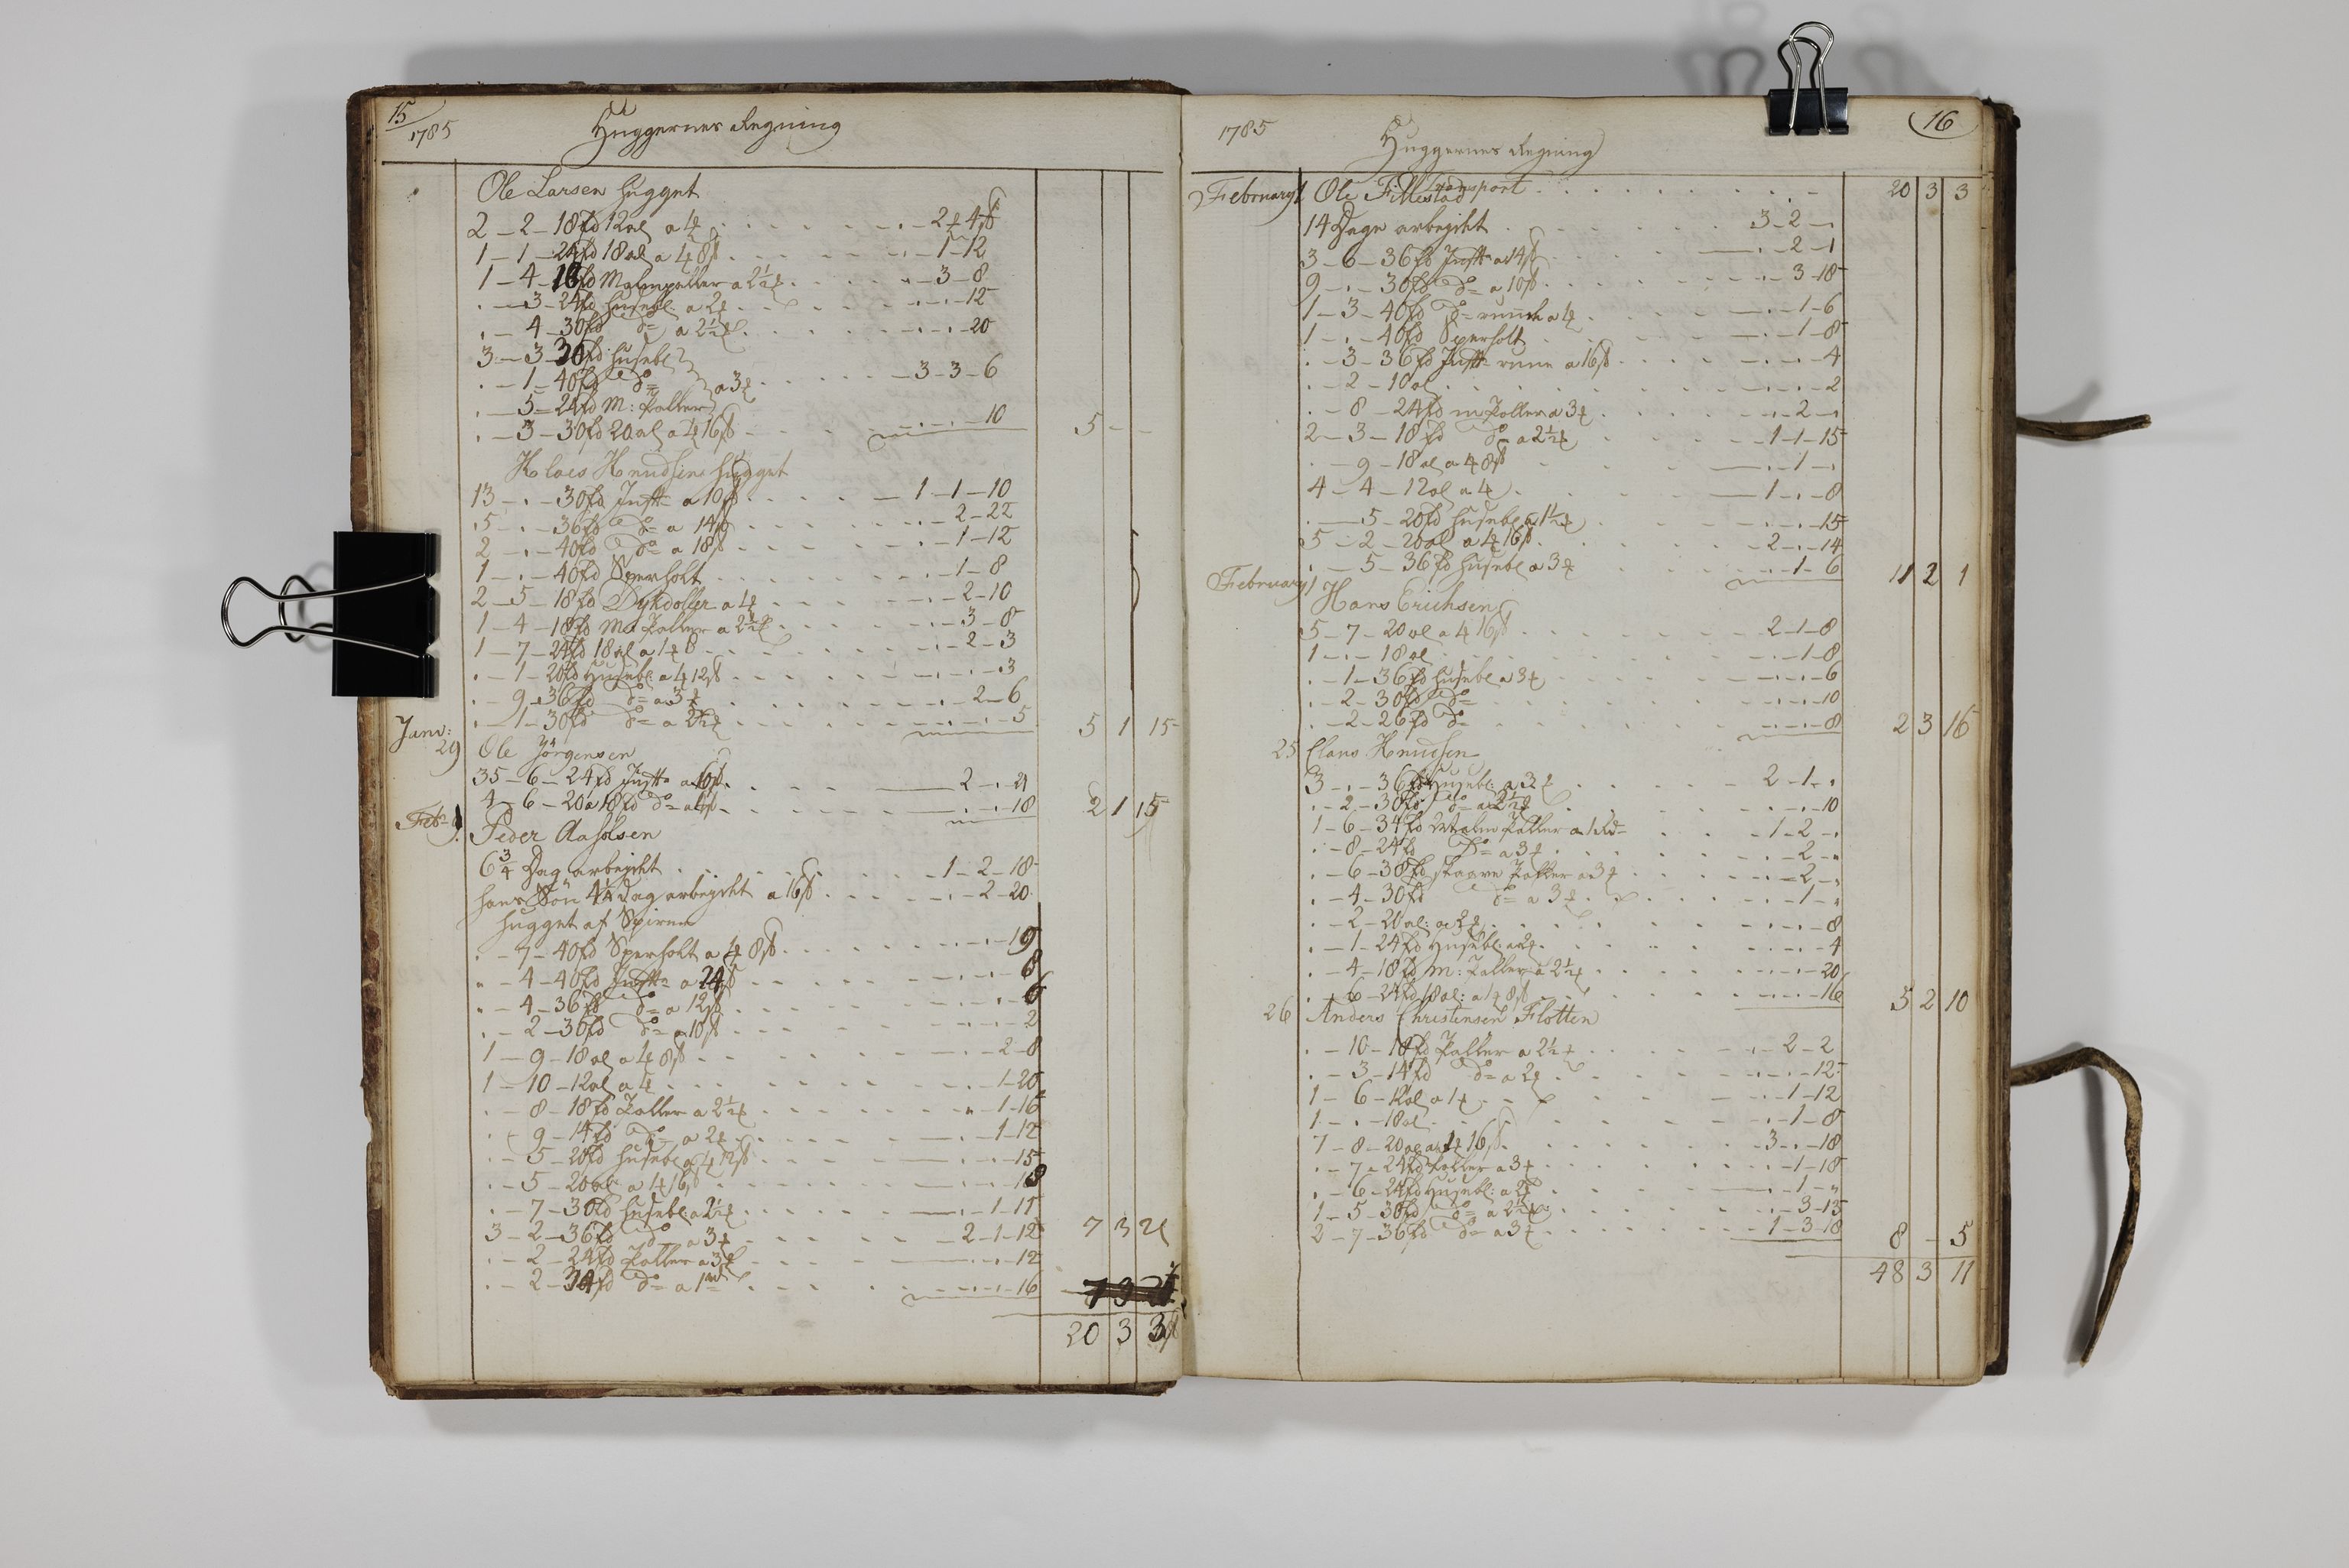 15
1785 Huggernes Regning
Ole Larsen hugget
2 – 2 – 18fd 12al a 1 . – 2 4ß
1 – 1 – 24fd 18al a 1 8ß . – 1 – 12
1 – 4 – 18fd Malmpaller a 2½ . – 3 – 8
. – 3 – 24fd husebl: a 2 . – . – 12
. – 4 – 30fd do a 2½ . – . – 20
3 – 3 – 30fd husebl
. – 1 – 40fd do a 3 – 3 – 3 – 6
. – 5 – 24fd M: Paller
. – 3 – 30fd 20al a 1 16ß . – . – 10 5 – –
Klaes Knudsen hugget
13 – . – 30fd a 10ß – 1 – 1 – 10
5 – . – 36fd do a 14ß . – 2 – 22
2 – . – 40fd do a 18ß . – 1 – 12
1 – . – 40fd Sperholt . – 1 – 8
2 – 5 – 18fd a 1 . – 2 – 10
1 – 4 – 18fd Ma Paller a 2½ . – 3 – 8
1 – 7 – 24fd 18al a 1 8 . – 2 – 3
. – 1 – 20fd Husebl a 1 12ß . – . – 3
. – 9 – 36fd do a 3 . – 2 – 6
. – 1 – 30fd do a 2½ . – . – 5 5 1 15
Janv: 29 Ole Jörgensen
35 – 6 – 24fd a 10ß – 2 – . – 21
4 – 6 – 20 a 18fd do a . – . – 18 2 1 15
Feb: 1. Peder Aasolsen
6¾ Dag arbejdt – 1 – 2 – 18
hans Sön 4¼ dag arbejdt a 16ß . – 2 – 20
hugget af Spirene
. – 7 – 40fd Sperholt a 1 8ß . – . – 19
. – 4 – 40fd a 24ß . – . – 8
. – 4 – 36fd do a 12ß . – . – 6
. – 2 – 30fd do a 10ß . – . – 2
1 – 9 – 18al a 1 8ß . – 2 – 8
1 – 10 – 12al a 1 . – 1 – 20
. – 8 – 18fd Paller a 2½ . – 1 – 16
. – 9 – 14fd do a 2 . – 1 – 12
. – 5 – 20fd husebl a 1 12ß . – . – 15
. – 5 – 20al a 1 16ß . – . – 18
. – 7 – 30fd husebl: a 2½ . – 1 – 11
3 – 2 – 36fd do a 3 – 2 – 1 – 12 7 3 21
. – 2 – 24fd Paller a 3 . – . – 12
. – 2 – 34fd do a 1 . – . – 16
20 3 3
16
1785 Huggernes Regning
Transport 20 3 3
February 1 Ole Fillestad
14 Dage arbejdt 3 – 2 – .
3 – 6 – 36fd a 14ß . – 2 – 1
9 – . – 30fd do a 10ß . – 3 – 18
1 – 3 – 40fd do runde a 1 . – 1 – 6
1 – . – 40fd Sperholt . – 1 – 8
. – 3 – 36fd a 16ß . – . – 4
. – 2 – 10al . – . – 2
. – 8 – 24fd m Paller a 3 . – 2 – .
2 – 3 – 18fd do a 2½ – 1 – 1 – 15
. – 9 – 18al a 1 8ß . – 1 – .
4 – 4 – 12al a 1 1 – . – 8
. – 5 – 20fd husebl a 1½ . – . – 15
5 – 2 – 20al a 1 16ß 2 – . – 14
. – 5 – 36fd husebl a 3 . – 1 – 6 11 2 1
February 1 Hans Erichsen
5 – 7 – 20al a 1 16ß 2 – 1 – 8
1 – . – 18al . – 1 – 8
. – 1 – 36fd husebl a 3 . – . – 6
. – 2 – 30fd do . – . – 10
. – 2 – 26fd do . – . – 8 2 3 16
25 Claus Knudsen
3 – . – 36fd Husebl: a 3 2 – 1 – .
. – 2 – 30fd do a 2½ . – . – 10
1 – 6 – 34fd Malm Paller a 1 – 1 – 2 – .
. – 8 – 24fd do a 3 . – 2 – .
. – 6 – 38fd Paller a 3 . – 2 – .
. – 4 – 30fd do a 3 . – 1 – .
. – 2 – 20al: a 2 . – . – 8
. – 1 – 24fd Husebl: a 2 . – . – 4
. – 4 – 18fd M: Paller a 2½ . – . – 20
. – 6 – 24fd 18al: a 1 8ß . – . – 16 5 2 10
26 Anders Christensen Flotten
. – 10 – 18fd Paller a 2½ . – 2 – 2
. – 3 – 14fd do a 2 . – . – 12
1 – 6 – 12al a 1 . – 1 – 12
1 – . – 18al . – 1 – 8
7 – 8 – 20al a 1 16ß 3 – . – 18
. – 7 – 24fd Paller a 3 . – 1 – 18
. – 6 – 24fd Husebl: a 2 . – 1 – .
1 – 5 – 30fd do a 2½ . – 3 – 13
2 – 7 – 36fd do a 3 – 1 – 3 – 18 8 – 5
48 3 11